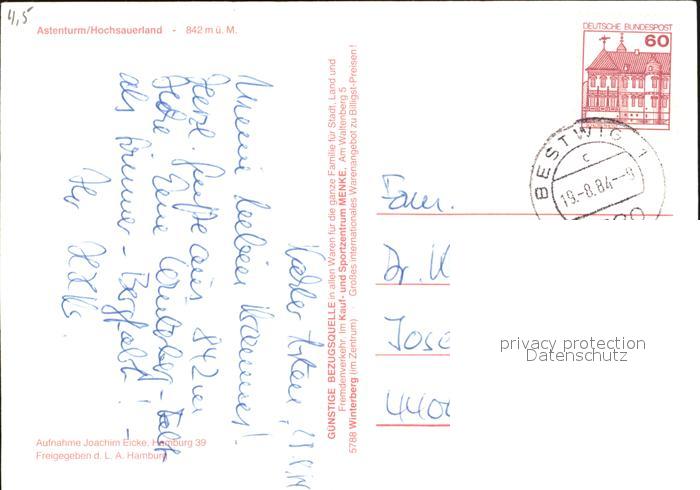 4,5
Astenturm/Hochsauerland - 842 m ü. M.
DEUTSCHE BUNDESPOST
60
BESTWIG 1
c
19.-8.84.--9
GÜNSTIGE BEZUGSQUELLE in allen Waren für die ganze Familie für Stadt, Land und
Fremdenverkehr. Im Kauf- und Sportzentrum MENKE. Am Waltenberg 5
5788 Winterberg (im Zentrum) Großes internationales Warenangebot zu Billigst-Preisen!
Kahler Asten,
Meine lieben
Herzl. Grüße aus 842 m
Höhe
als immer - Bergfahrt! -
Ihr
Fam.
Dr. U
Jose
440
privacy protection
Datenschutz
Aufnahme Joachim Eicke, Hamburg 39
Freigegeben d. L. A. Hamburg